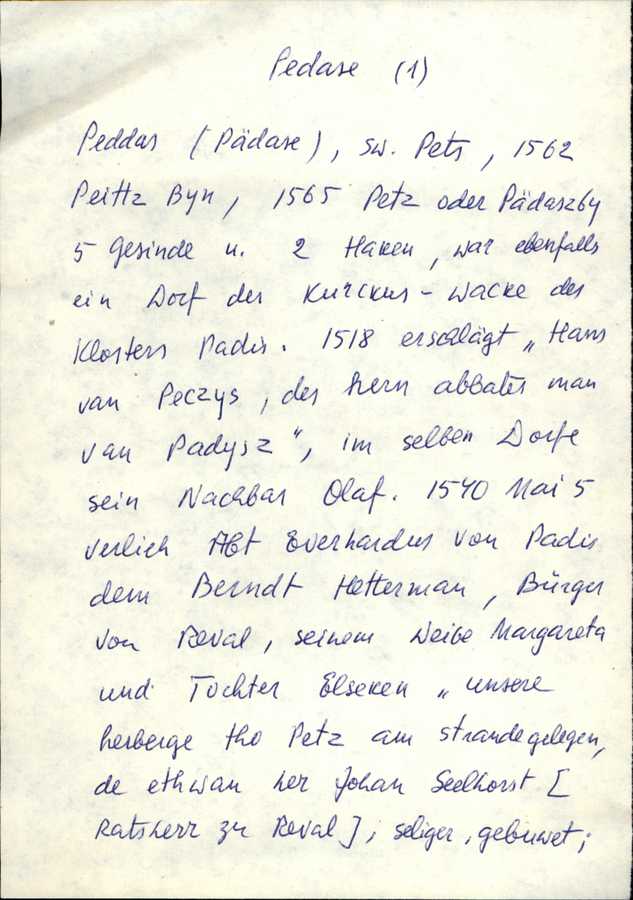 Pedase (1)
Peddas (Pädase), sw. Pets, 1562
Peittz Byn, 1565 Petz oder Pädaszby
5 Gesinde u. 2 Haken, war ebenfalls
ein Dorf der Kurckus-Wacke des
Klosters Padis. 1518 erschlägt „Hans
van Peczys, des hern abbates man
van Padysz", im selben Dorfe
sein Nachbar Olaf. 1540 Mai 5
verlieh Abt Everhardus von Padis
dem Berndt Hetterman, Bürger
von Reval, seinem Weibe Margareta
und Tochter Elseken „unsere
herberge tho Petz am strande gelegen,
de ethwan her Johan Seelhorst [
Ratsherr zu Reval], seliger, gebuwet;